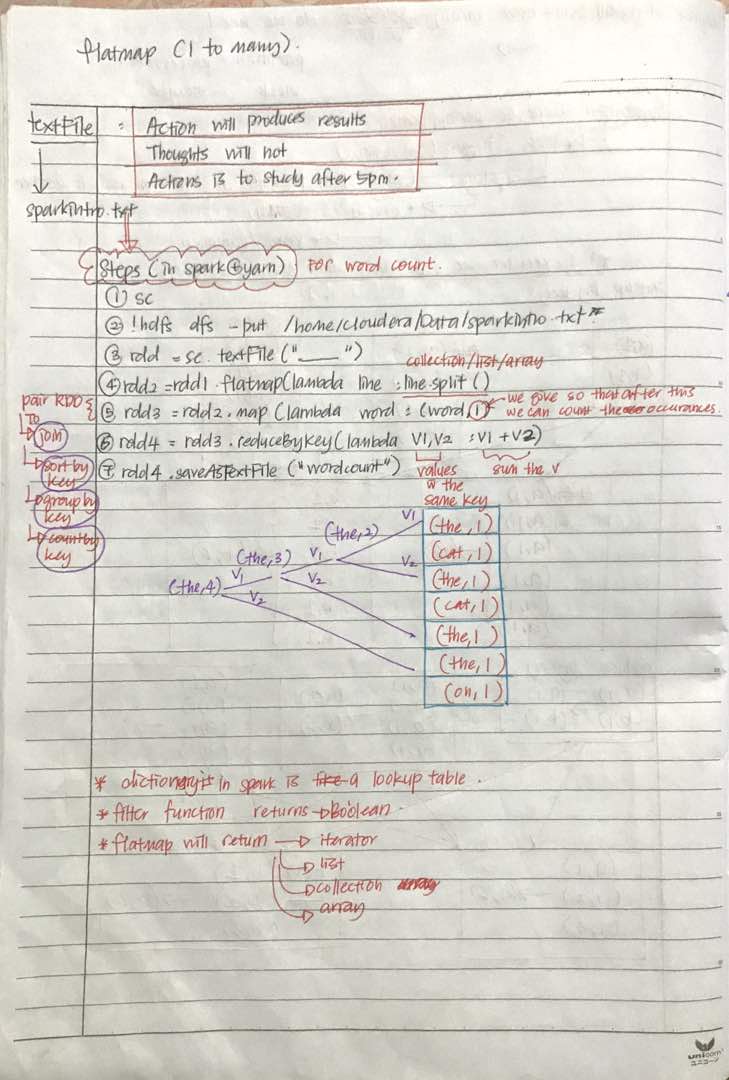 flatmap (1 to many).
textFile : Action will produces results
Thoughts will not
Actions is to study after 5pm.
sparkintro.txt
Steps (in spark yarn) For word count.
① sc
② !hdfs dfs -put /home/cloudera/Data/sparkintro.txt
③ rdd = sc.textFile("____")
collection/list/array
④ rdd2 = rdd1.flatmap(lambda line : line.split()
pair RDDs
⑤ rdd3 = rdd2.map (lambda word : (word,1)
we give so that after this
we can count the occurances.
To
join
⑥ rdd4 = rdd3.reduceByKey(lambda V1,V2 : V1 + V2)
sort by
key
⑦ rdd4.saveAsTextFile ("wordcount")
values
w the
same key
sum the V
group by
key
count by
key
V1 (the,1)
(the,2)
(cat,1)
(the,3) V1 V2 (the,1)
(the,4) V1 V2
V2 (cat,1)
(the,1)
(the,1)
(on,1)
* dictionary in spark is like a lookup table.
* filter function returns Boolean
* flatmap will return iterator
list
collection array
array
unicorn
ユニコーン